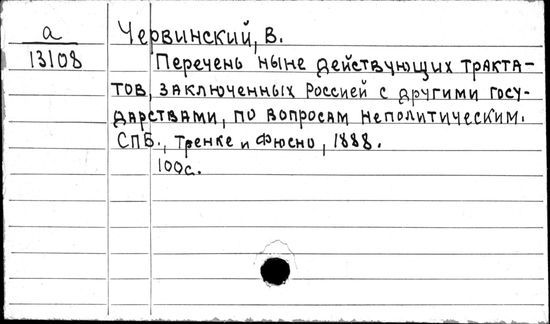 а
13108
Червинский, В.
Перечень ныне действующих тракта-
тов, заключенных Россией с другими госу-
дарствами, по вопросам неполитическим.
СПБ., Тренке и Фюсно, 1888.
100с.